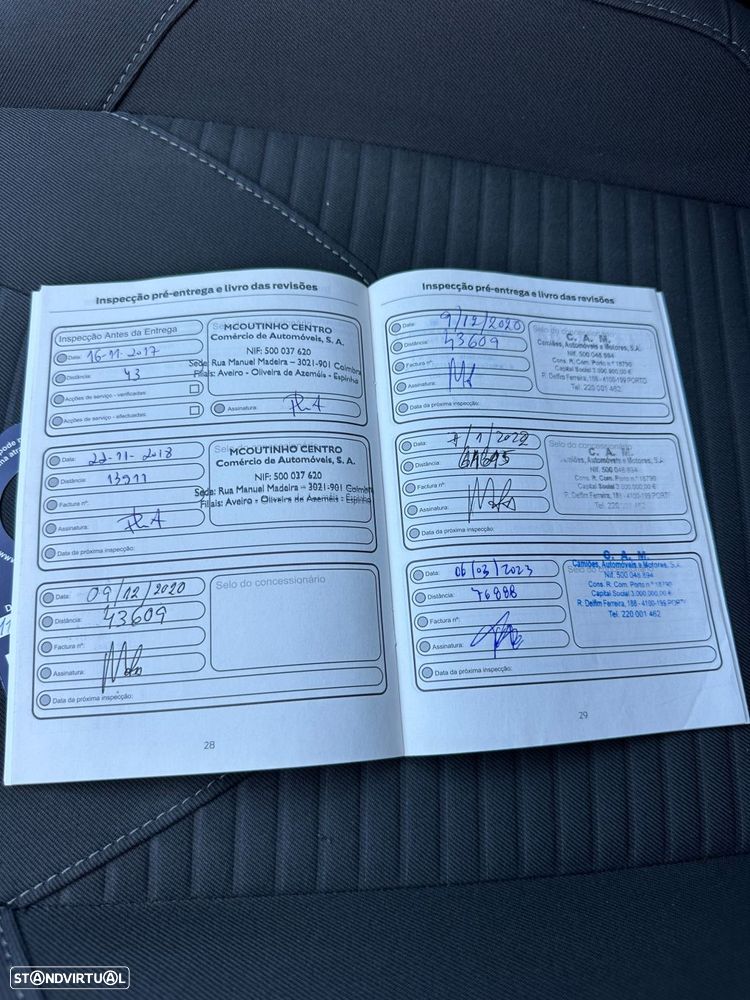 Inspecção pré-entrega e livro das revisões
Inspecção Antes da Entrega
Data: 16-11-2017
Distância: 43
Acções de serviço - verificadas:
Acções de serviço - efectuadas:
MCOUTINHO CENTRO
Comércio de Automóveis, S. A.
NIF: 500 037 620
Sede: Rua Manuel Madeira – 3021-901 Coimbra
Filiais: Aveiro - Oliveira de Azeméis - Espinho
Assinatura:
Data: 22-11-2018
Distância: 13911
Factura nº:
Assinatura:
Data da próxima inspecção:
MCOUTINHO CENTRO
Comércio de Automóveis, S. A.
NIF: 500 037 620
Sede: Rua Manuel Madeira – 3021-901 Coimbra
Filiais: Aveiro - Oliveira de Azeméis - Espinho
Data: 09/12/2020
Distância: 43609
Factura nº:
Assinatura:
Data da próxima inspecção:
Selo do concessionário
28
Inspecção pré-entrega e livro das revisões
Data: 9/12/2020
Distância: 43609
Factura nº:
Assinatura:
Data da próxima inspecção:
Selo do
C. A. M.
Camiões, Automóveis e Motores, S.A.
Nif. 500 048 894
Cons. R. Com. Porto n.º 18790
Capital Social 3.000.000,00 €
R. Delfim Ferreira, 188 - 4100-199 PORTO
Tel. 220 001 462
Data: 7/1/2022
Distância:
Factura nº:
Assinatura:
Data da próxima inspecção:
Selo do
C. A. M.
Camiões, Automóveis e Motores, S.A.
Nif. 500 048 894
Cons. R. Com. Porto n.º 18790
Capital Social 3.000.000,00 €
R. Delfim Ferreira, 188 - 4100-199 PORTO
Tel. 220 001 462
Data: 06/03/2023
Distância: 76888
Factura nº:
Assinatura:
Data da próxima inspecção:
C. A. M.
Camiões, Automóveis e Motores, S.A.
Nif. 500 048 894
Cons. R. Com. Porto n.º 18790
Capital Social 3.000.000,00 €
R. Delfim Ferreira, 188 - 4100-199 PORTO
Tel. 220 001 462
29
STANDVIRTUAL